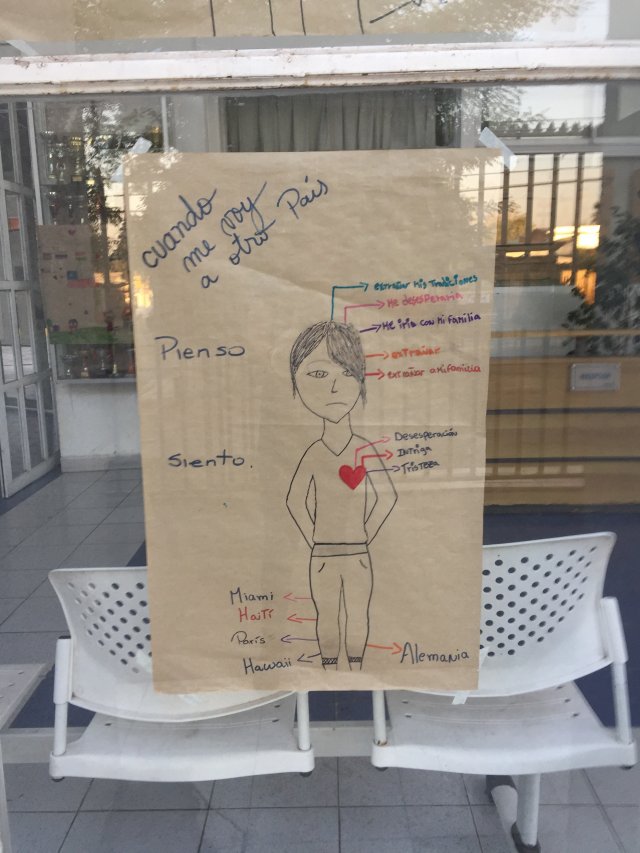 cuando
me voy
a otro País
extrañar mis tradiciones
me desesperaria
Me iria con mi familia
Pienso
extrañar
extrañar a mi familia
Desesperación
Intriga
Tristeza
Siento.
Miami
Haití
París
Hawaii
Alemania